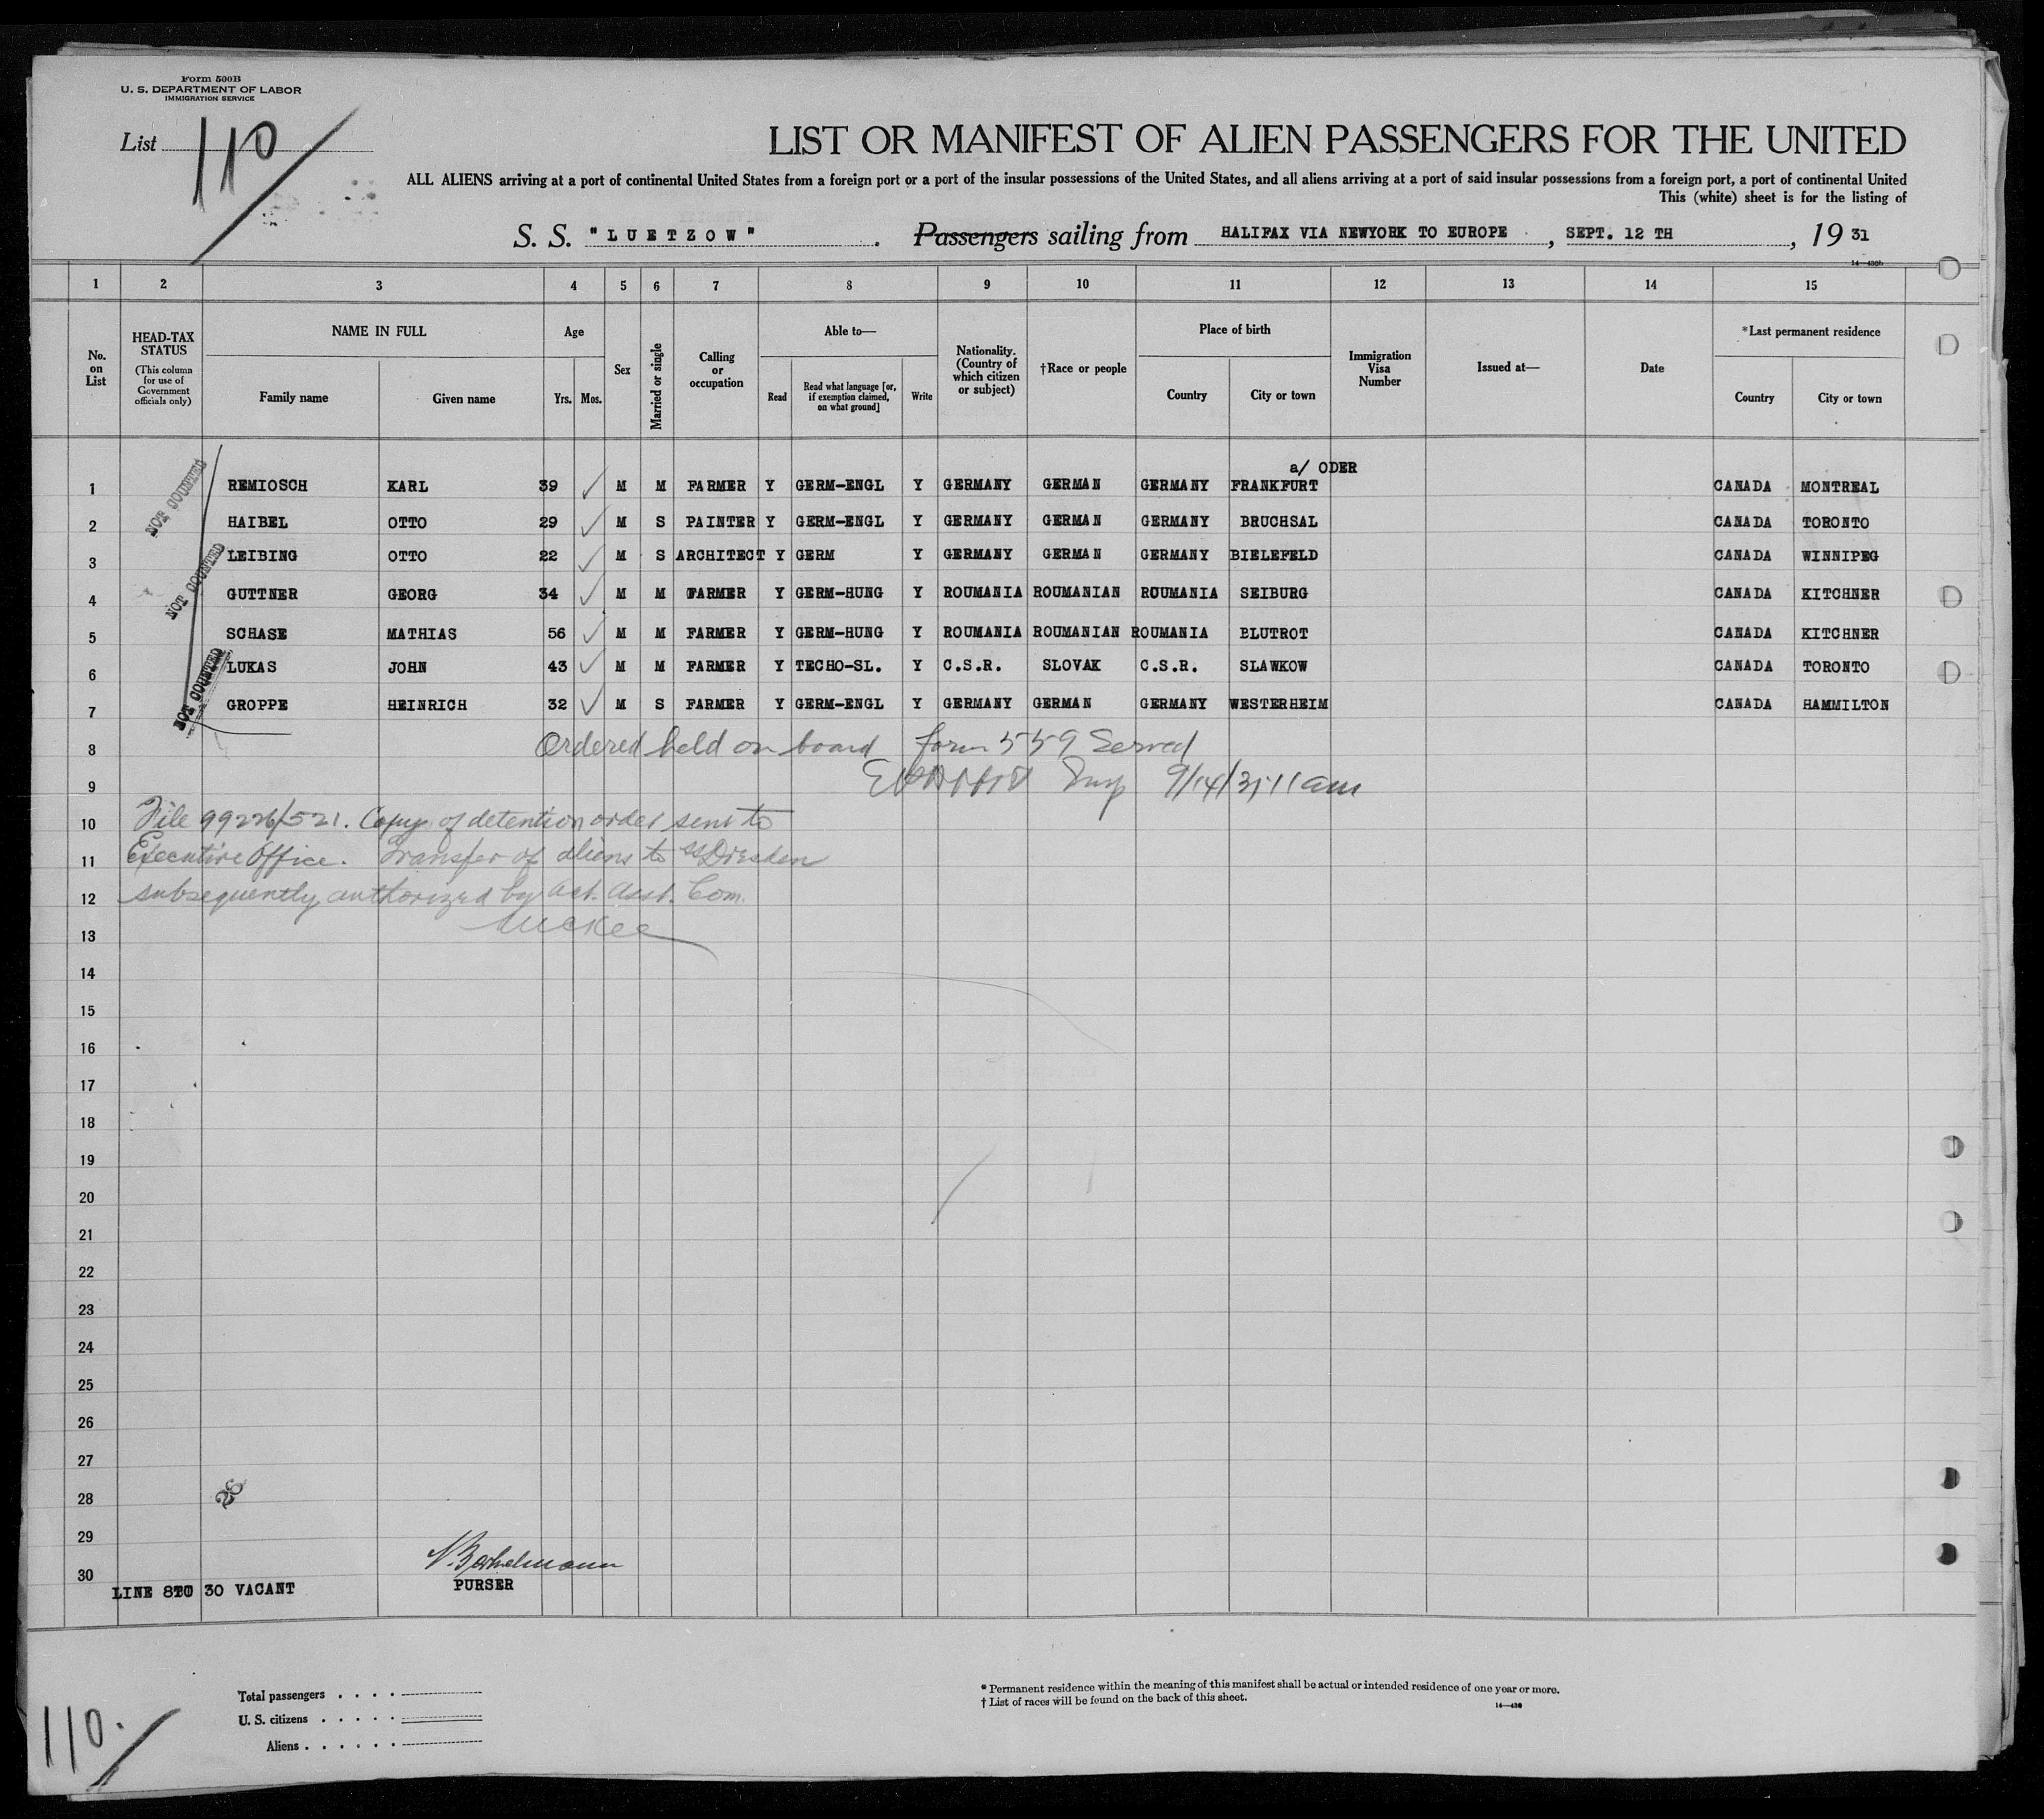 Form 500B
U. S. DEPARTMENT OF LABOR
IMMIGRATION SERVICE
List 110
LIST OR MANIFEST OF ALIEN PASSENGERS FOR THE UNITED
ALL ALIENS arriving at a port of continental United States from a foreign port or a port of the insular possessions of the United States, and all aliens arriving at a port of said insular possessions from a foreign port, a port of continental United
This (white) sheet is for the listing of
S. S. "LUETZOW". Passengers sailing from HALIFAX VIA NEWYORK TO EUROPE, SEPT. 12 TH, 1931
1 2 3 4 5 6 7 8 9 10 11 12 13 14 15
No. on List
HEAD-TAX STATUS (This column for use of Government officials only)
NAME IN FULL
Family name Given name
Age
Yrs. Mos.
Sex
Married or single
Calling or occupation
Able to—
Read
Read what language [or, if exemption claimed, on what ground]
Write
Nationality. (Country of which citizen or subject)
†Race or people
Place of birth
Country City or town
Immigration Visa Number
Issued at—
Date
*Last permanent residence
Country City or town
NOT COUNTED
NOT COUNTED
NOT COUNTED
a/ ODER
1 REMIOSCH KARL 39 M M FARMER Y GERM-ENGL Y GERMANY GERMAN GERMANY FRANKFURT CANADA MONTREAL
2 HAIBEL OTTO 29 M S PAINTER Y GERM-ENGL Y GERMANY GERMAN GERMANY BRUCHSAL CANADA TORONTO
3 LEIBING OTTO 22 M S ARCHITECT Y GERM Y GERMANY GERMAN GERMANY BIELEFELD CANADA WINNIPEG
4 GUTTNER GEORG 34 M M FARMER Y GERM-HUNG Y ROUMANIA ROUMANIAN ROUMANIA SEIBURG CANADA KITCHNER
5 SCHASE MATHIAS 56 M M FARMER Y GERM-HUNG Y ROUMANIA ROUMANIAN ROUMANIA BLUTROT CANADA KITCHNER
6 LUKAS JOHN 43 M M FARMER Y TECHO-SL. Y C.S.R. SLOVAK C.S.R. SLAWKOW CANADA TORONTO
7 GROPPE HEINRICH 32 M S FARMER Y GERM-ENGL Y GERMANY GERMAN GERMANY WESTERHEIM CANADA HAMMILTON
8 Ordered held on board form 559 Served
9 Insp 9/14/31 11 am
10 File 99226/521. Copy of detention order sent to
11 Executive Office. Transfer of aliens to SS Dresden
12 subsequently authorized by Act. Asst. Com.
13 McKee
14
15
16
17
18
19
20
21
22
23
24
25
26
27
28
29
30
LINE 8 TO 30 VACANT
PURSER
Total passengers
U. S. citizens
Aliens
* Permanent residence within the meaning of this manifest shall be actual or intended residence of one year or more.
† List of races will be found on the back of this sheet.
110.